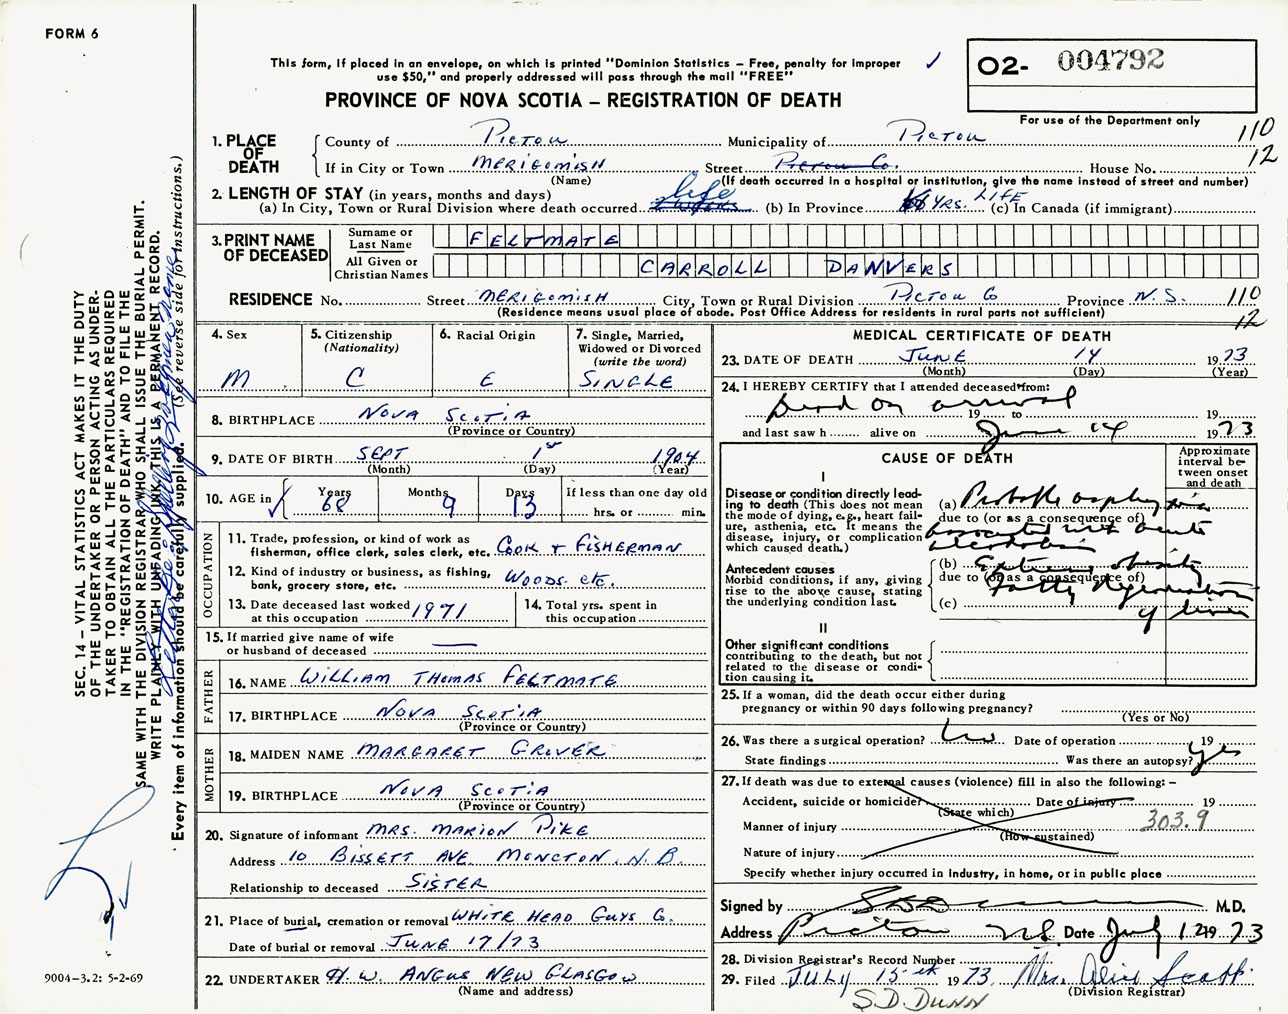 FORM 6
This form, if placed in an envelope, on which is printed "Dominion Statistics – Free, penalty for improper
use $50," and properly addressed will pass through the mail "FREE"
PROVINCE OF NOVA SCOTIA – REGISTRATION OF DEATH
O2- 004792
For use of the Department only
110
12
1. PLACE OF DEATH
County of PICTOU Municipality of PICTOU
If in City or Town MERIGOMISH Street Pictou Co. House No.
(Name) (If death occurred in a hospital or institution, give the name instead of street and number)
2. LENGTH OF STAY (in years, months and days)
(a) In City, Town or Rural Division where death occurred life (b) In Province YRS. LIFE (c) In Canada (if immigrant)
3. PRINT NAME OF DECEASED
Surname or Last Name FELTMATE
All Given or Christian Names CARROLL DANVERS
RESIDENCE No. Street MERIGOMISH City, Town or Rural Division PICTOU Co Province N.S. 110
(Residence means usual place of abode. Post Office Address for residents in rural parts not sufficient) 12
4. Sex M
5. Citizenship (Nationality) C
6. Racial Origin E
7. Single, Married, Widowed or Divorced (write the word) SINGLE
8. BIRTHPLACE NOVA SCOTIA
(Province or Country)
9. DATE OF BIRTH SEPT 1st 1904
(Month) (Day) (Year)
10. AGE in Years 68 Months 9 Days 13 If less than one day old
hrs. or min.
OCCUPATION
11. Trade, profession, or kind of work as
fisherman, office clerk, sales clerk, etc. COOK + FISHERMAN
12. Kind of industry or business, as fishing,
bank, grocery store, etc. WOODS etc.
13. Date deceased last worked
at this occupation 1971
14. Total yrs. spent in
this occupation
15. If married give name of wife
or husband of deceased —
FATHER
16. NAME WILLIAM THOMAS FELTMATE
17. BIRTHPLACE NOVA SCOTIA
(Province or Country)
MOTHER
18. MAIDEN NAME MARGARET GROVER
19. BIRTHPLACE NOVA SCOTIA
(Province or Country)
20. Signature of informant MRS. MARION PIKE
Address 10 BISSETT AVE MONCTON, N.B.
Relationship to deceased SISTER
21. Place of burial, cremation or removal WHITE HEAD GUYS Co.
Date of burial or removal JUNE 17/73
22. UNDERTAKER H.W. ANGUS NEW GLASGOW
(Name and address)
MEDICAL CERTIFICATE OF DEATH
23. DATE OF DEATH JUNE 14 1973
(Month) (Day) (Year)
24. I HEREBY CERTIFY that I attended deceased from:
Dead on arrival 19 to 19
and last saw h alive on June 14 1973
CAUSE OF DEATH
Approximate interval between onset and death
I
Disease or condition directly leading to death (This does not mean the mode of dying, e.g., heart failure, asthenia, etc. It means the disease, injury, or complication which caused death.)
(a) Probable asphyxia
due to (or as a consequence of)
associated with acute
alcoholism
Antecedent causes
Morbid conditions, if any, giving rise to the above cause, stating the underlying condition last.
(b) Extreme obesity
due to (or as a consequence of)
(c) Fatty degeneration
of liver
II
Other significant conditions
contributing to the death, but not related to the disease or condition causing it.
25. If a woman, did the death occur either during
pregnancy or within 90 days following pregnancy?
(Yes or No)
26. Was there a surgical operation? No Date of operation 19
State findings Was there an autopsy? yes
27. If death was due to external causes (violence) fill in also the following: –
Accident, suicide or homicide? Date of injury 19
(State which)
Manner of injury 303.9
(How sustained)
Nature of injury
Specify whether injury occurred in Industry, in home, or in public place
Signed by M.D.
Address Pictou N.S. Date July 12 1973
28. Division Registrar's Record Number
29. Filed JULY 15th 1973 Mrs. Alice Scott
(Division Registrar)
S.D. DUNN
SEC. 14 – VITAL STATISTICS ACT MAKES IT THE DUTY
OF THE UNDERTAKER OR PERSON ACTING AS UNDER-
TAKER TO OBTAIN ALL THE PARTICULARS REQUIRED
IN THE "REGISTRATION OF DEATH" AND TO FILE THE
SAME WITH THE DIVISION REGISTRAR WHO SHALL ISSUE THE BURIAL PERMIT.
WRITE PLAINLY WITH UNFADING INK. THIS IS A PERMANENT RECORD.
Every item of information should be carefully supplied. (See reverse side for instructions.)
9004–3.2: 5-2-69